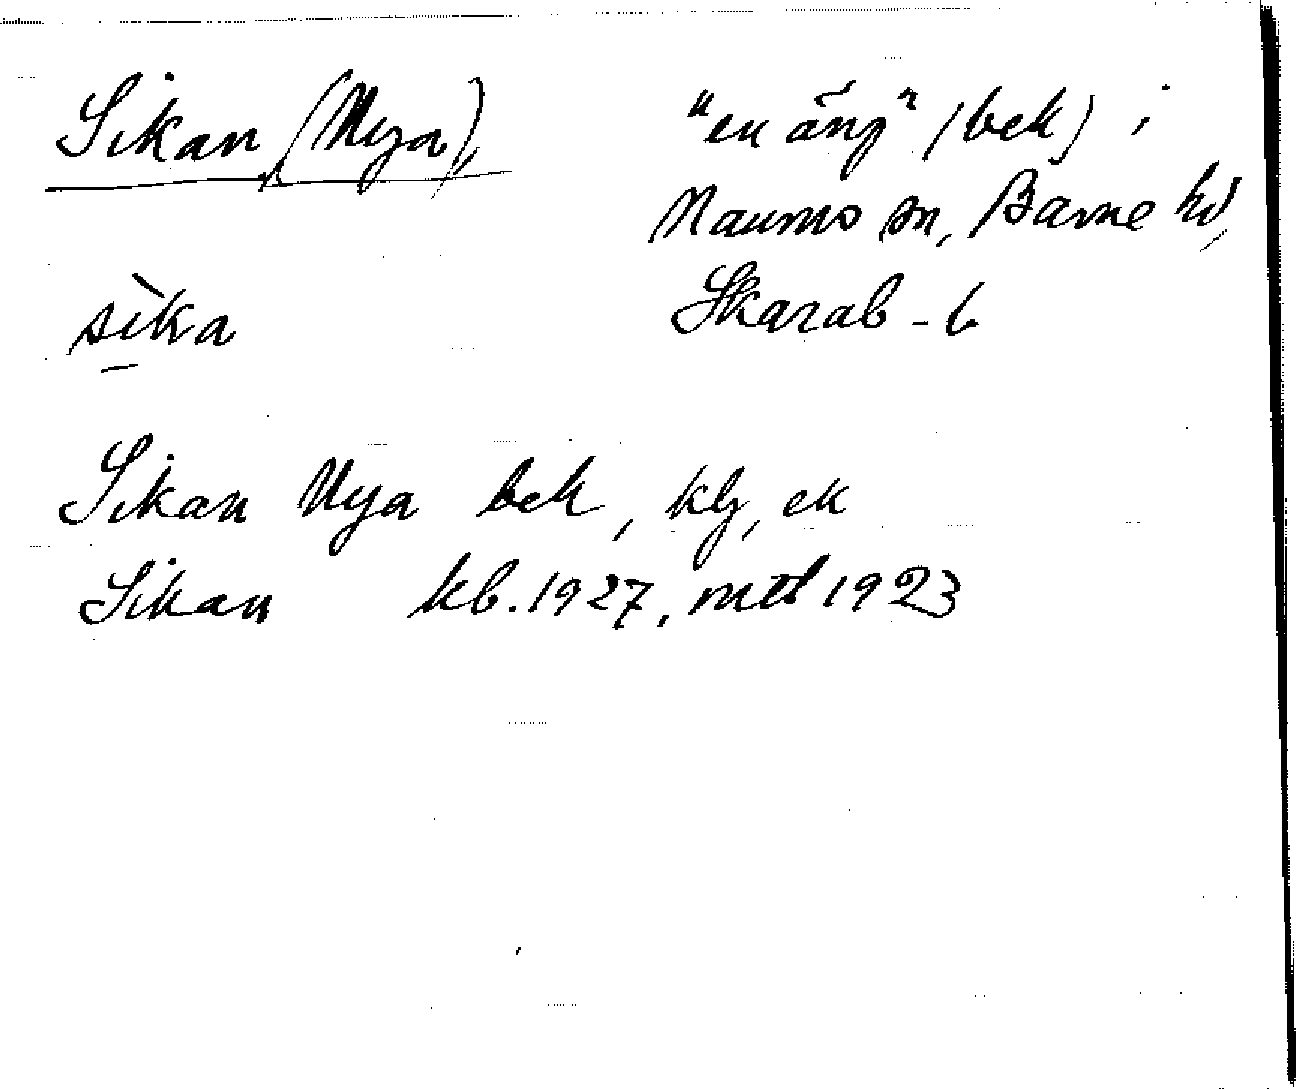 Sikan (Nya), "en äng" (bek) i
Naums sn, Barne hd,
sìka Skarab - l
Sikan Nya bek, klj, ek
Sikan kb. 1927, mtl 1923